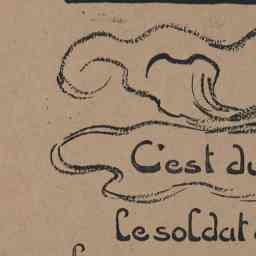 C'est du
Le soldat